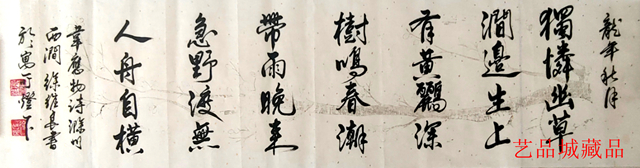 龍年秋月
獨憐幽草
澗邊生上
有黃鸝深
樹鳴春潮
帶雨晚來
急野渡無
人舟自橫
韋應物詩滁州
西澗徐維良書
於萬丁燈下
艺品城藏品